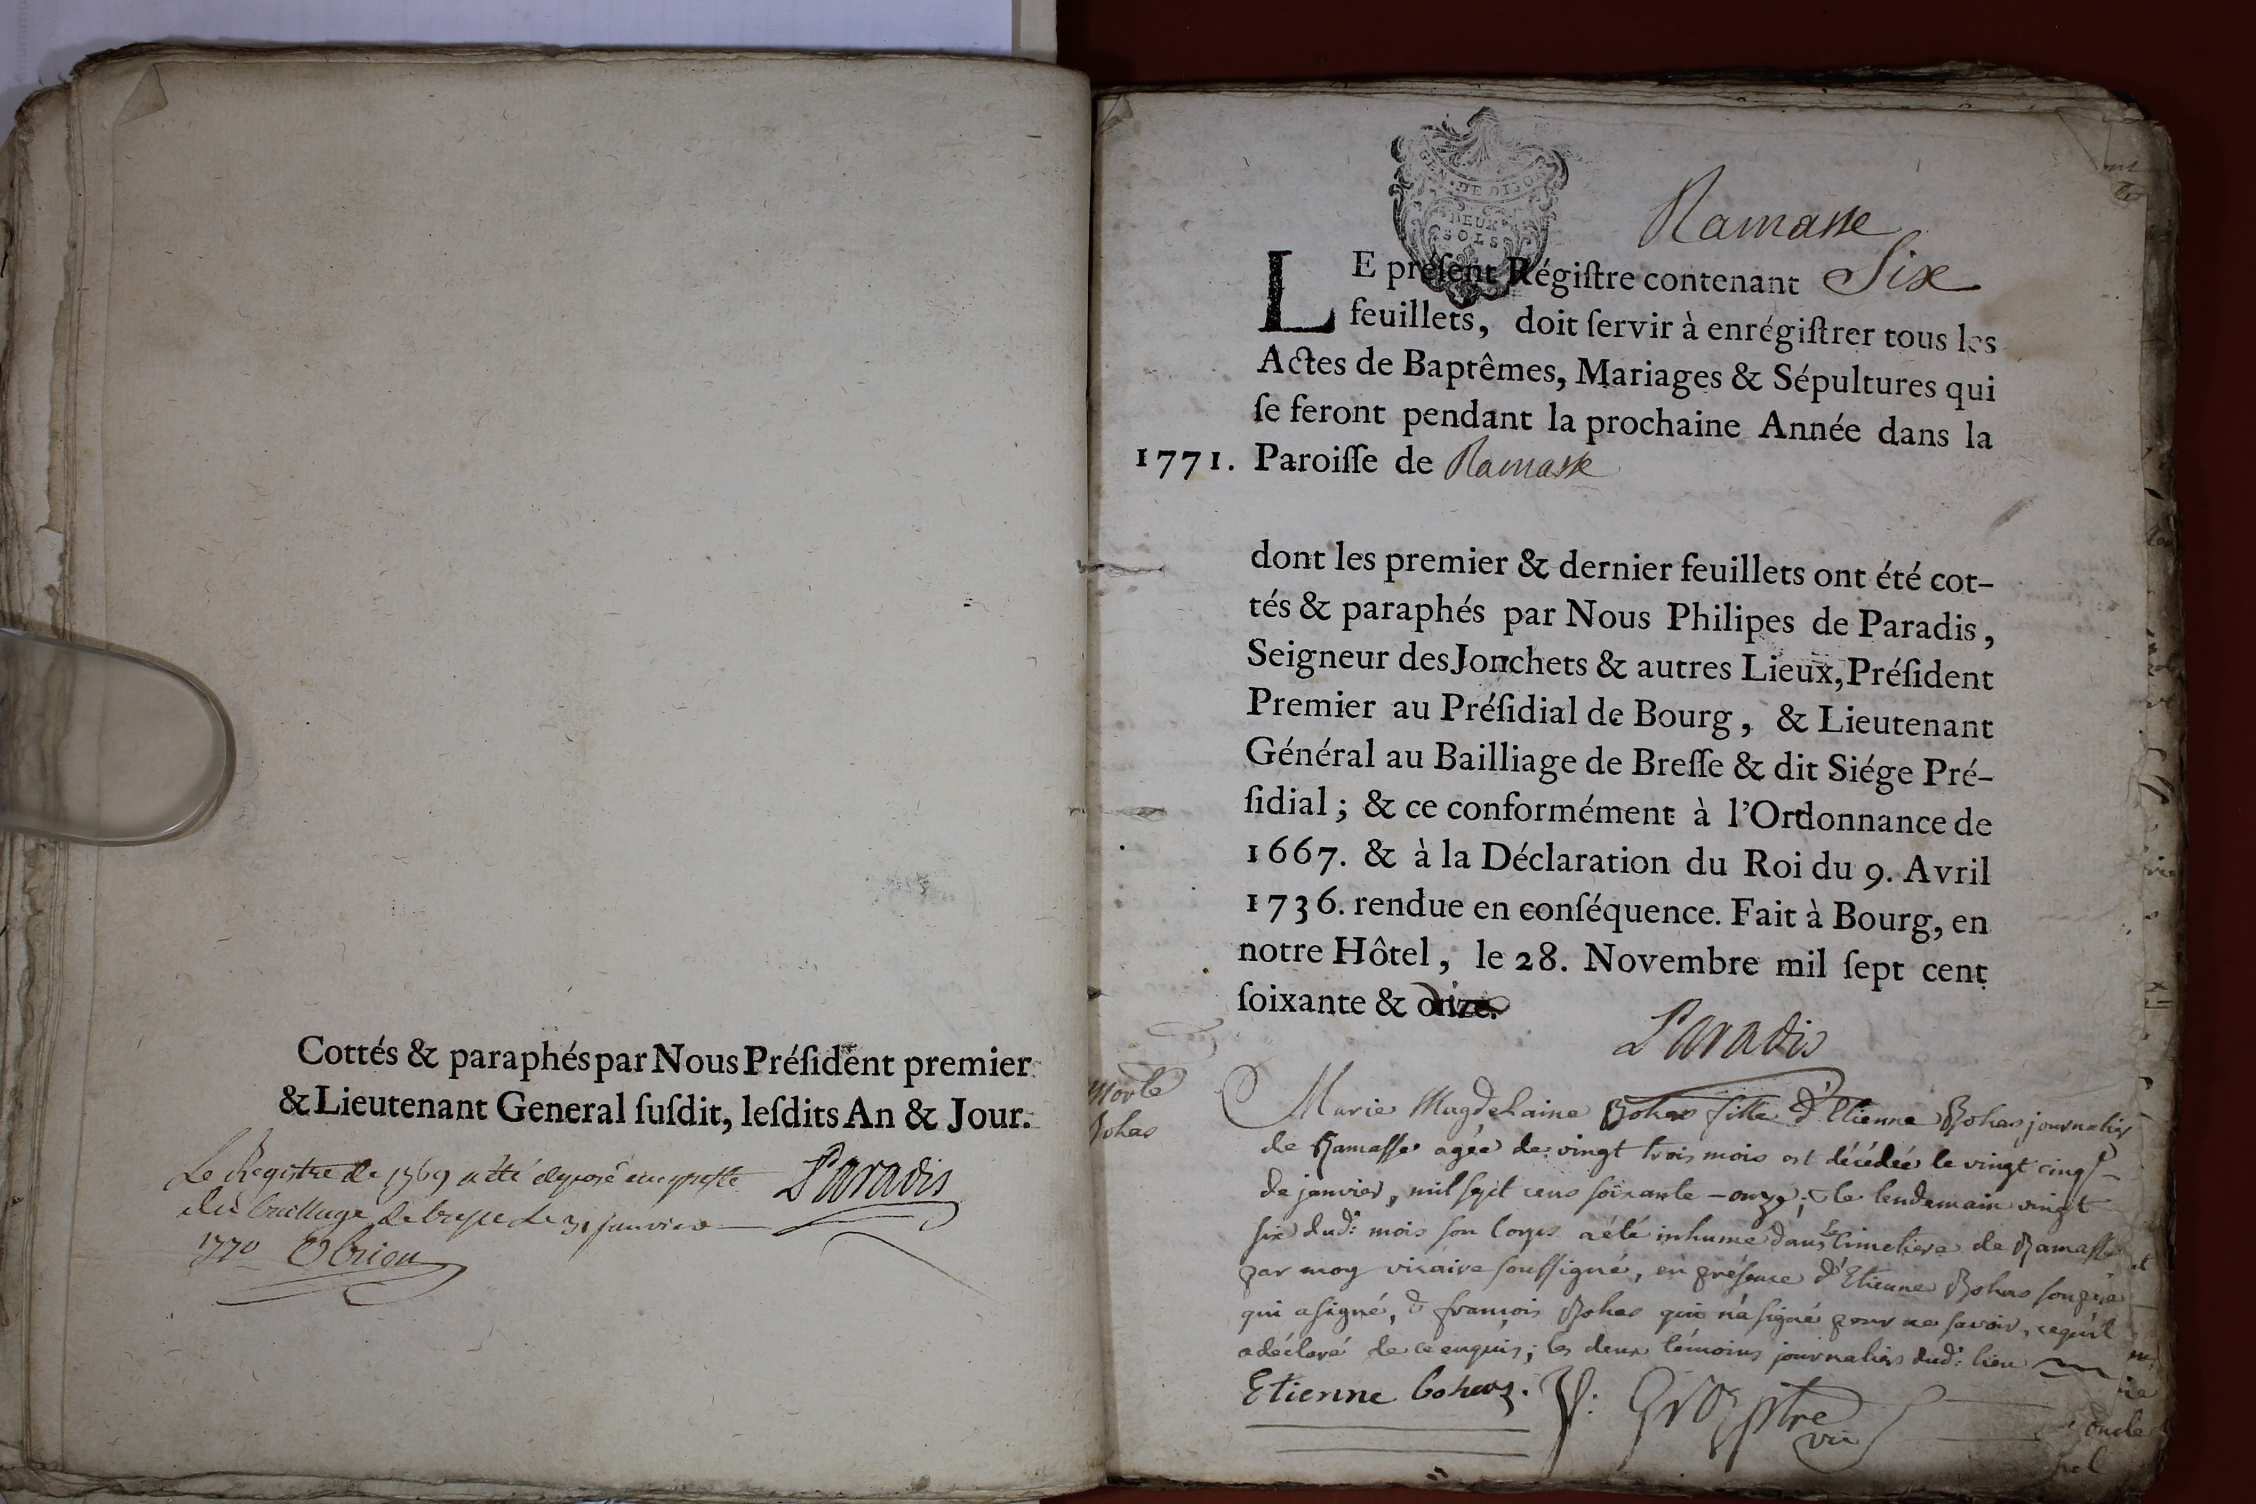 Cottés & paraphés par Nous Préſident premier
& Lieutenant General ſuſdit, leſdits An & Jour.
Le Registre de 1769 a été deposé au greffe
du bailliage de bresse le 31 janvier
1770
Paradis
GEN. DE DIJON
DEUX
SOLS
Ramasse
LE préſent Régiſtre contenant Six
feuillets, doit ſervir à enrégiſtrer tous les
Actes de Baptêmes, Mariages & Sépultures qui
ſe feront pendant la prochaine Année dans la
1771. Paroiſſe de Ramasse
dont les premier & dernier feuillets ont été cot-
tés & paraphés par Nous Philipes de Paradis,
Seigneur des Jonchets & autres Lieux, Préſident
Premier au Préſidial de Bourg, & Lieutenant
Général au Bailliage de Breſſe & dit Siége Pré-
ſidial; & ce conformément à l'Ordonnance de
1667. & à la Déclaration du Roi du 9. Avril
1736. rendue en conſéquence. Fait à Bourg, en
notre Hôtel, le 28. Novembre mil ſept cent
ſoixante & onze.
Paradis
Morte
Bohas
Marie Magdelaine Bohas fille d'Etienne Bohas journalier
de Ramasse agée de vingt trois mois est décédée le vingt cinq
de janvier, mil sept cens soixante-onze; & le lendemain vingt
six dud: mois son corps a été inhumé dans le cimetiere de Ramasse
par moy vicaire soussigné, en présence d'Etienne Bohas son père
qui a signé, & françois Bohas qui n'a signé pour ne savoir, ce qu'il
a déclaré de ce enquis; les deux témoins journaliers dud: lieu
Etienne bohas. Gros ptre
vic